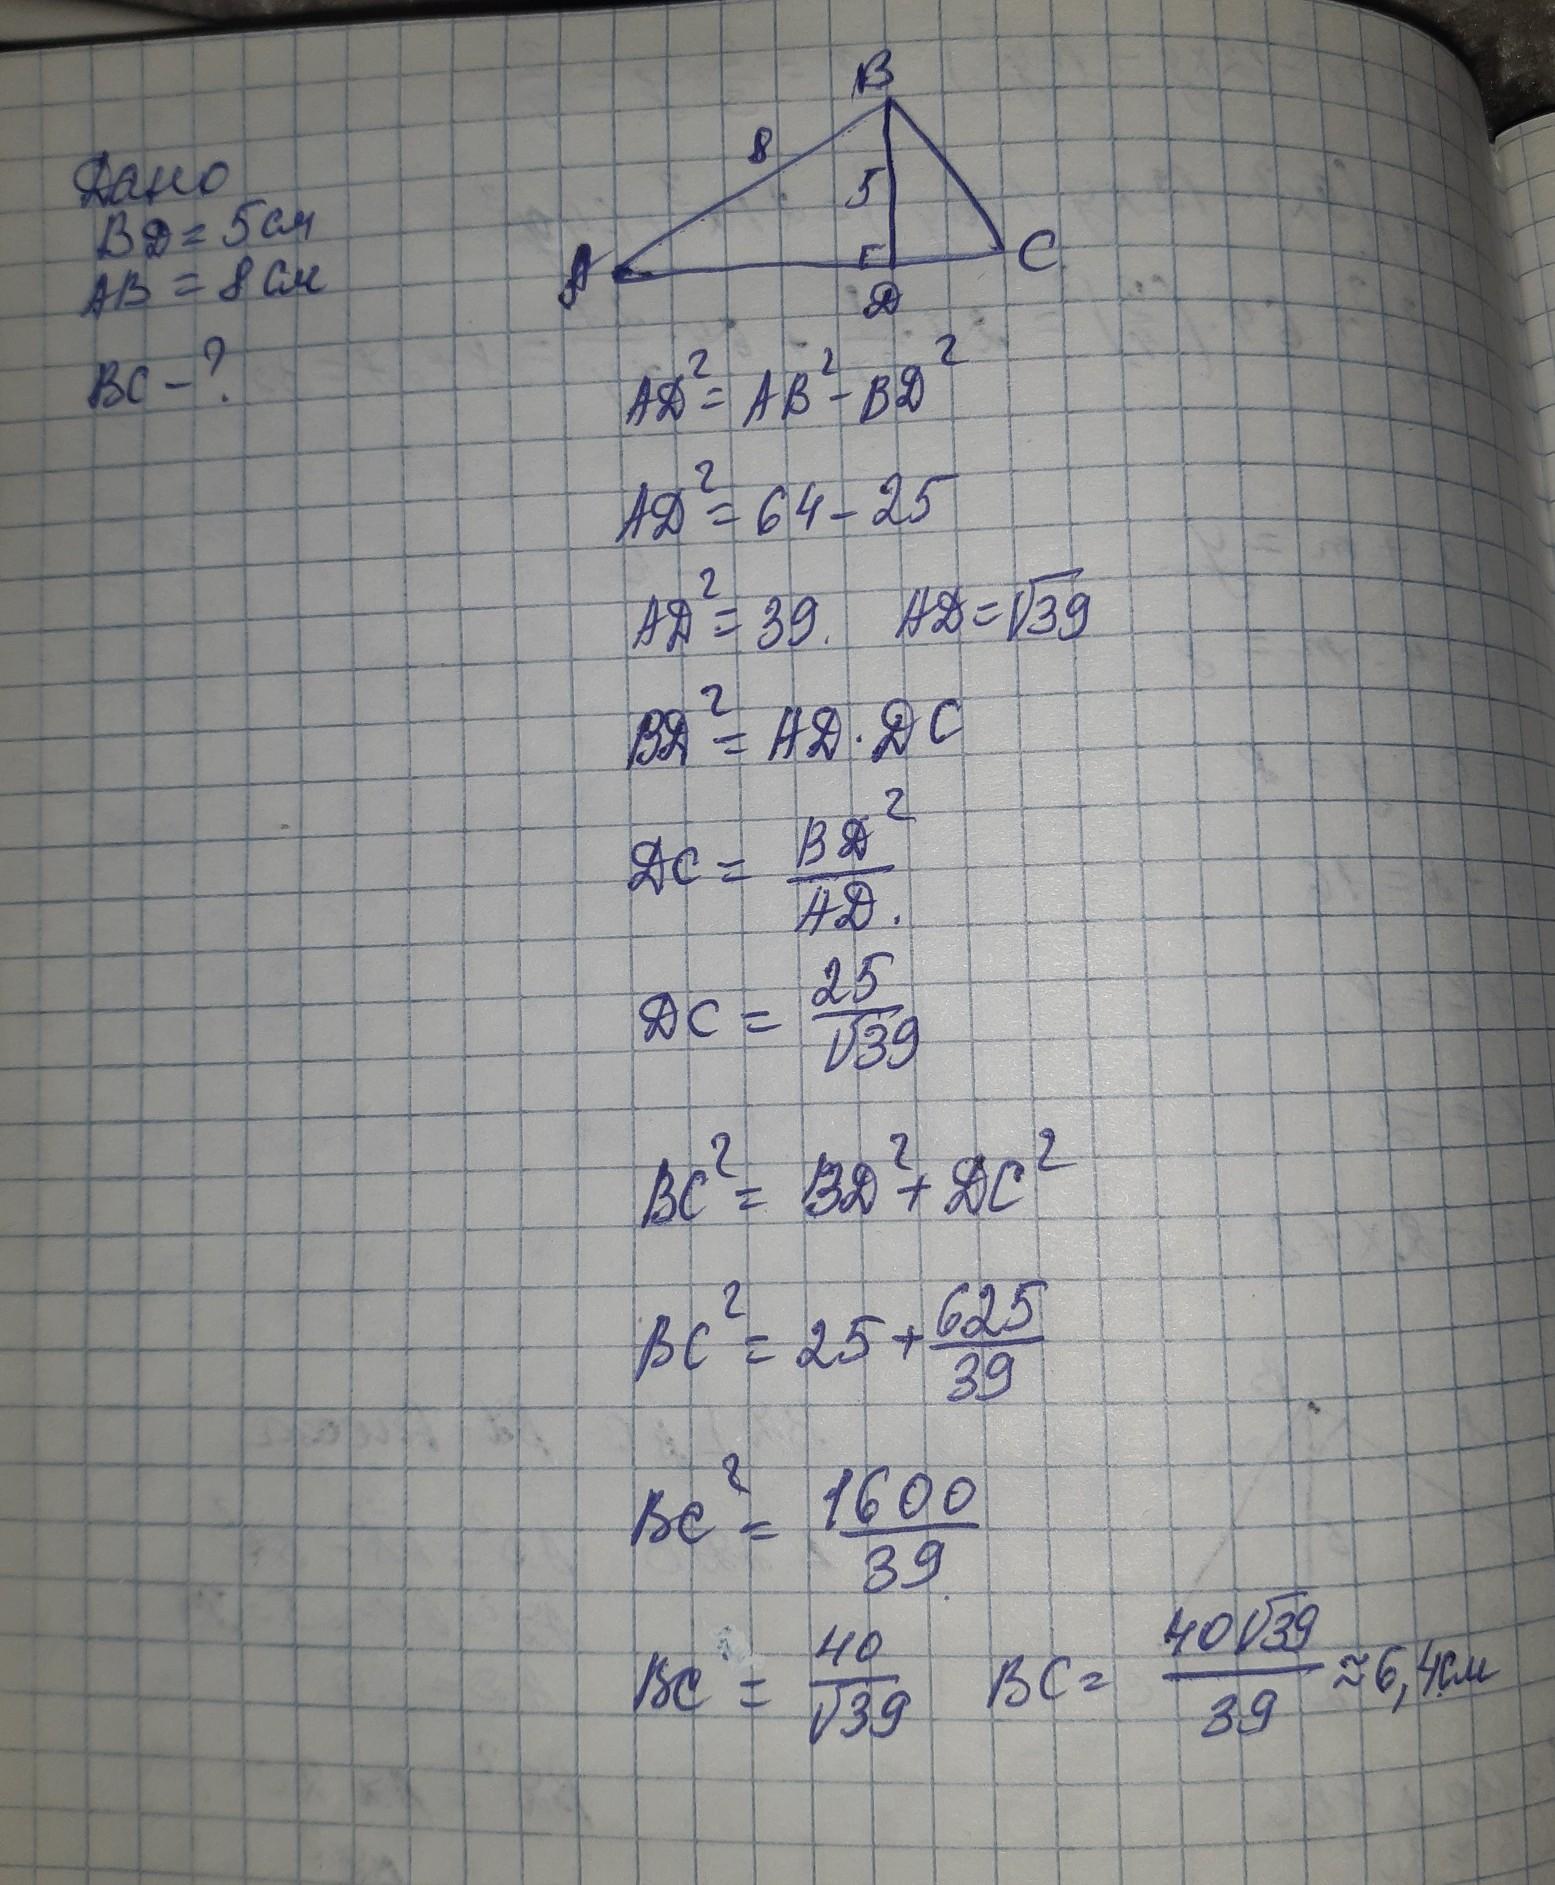 Дано
BD = 5 см
AB = 8 см
BC - ?
B
8
5
A
C
D
AD² = AB² - BD²
AD² = 64 - 25
AD² = 39. AD = √39
BD² = AD · DC
DC = BD² / AD.
DC = 25 / √39
BC² = BD² + DC²
BC² = 25 + 625 / 39
BC² = 1600 / 39
BC = 40 / √39 BC = 40√39 / 39 ≈ 6,4 см